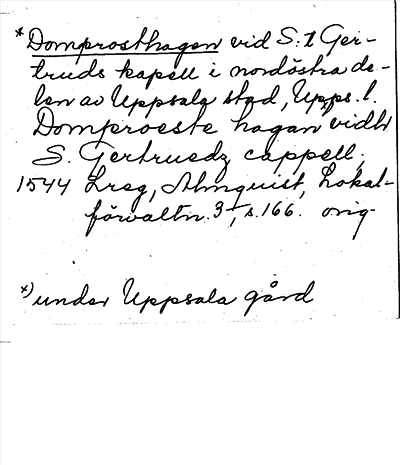 *Domprosthagen vid S:t Ger-
truds kapell i nordöstra de-
len av Uppsala stad, Upps. l.
Domproeste hagan vidh
S. Gertruedz cappell,
1544 Lreg, Almquist, Lokal-
förvaltn. 3:1, s. 166. orig.
*) under Uppsala gård